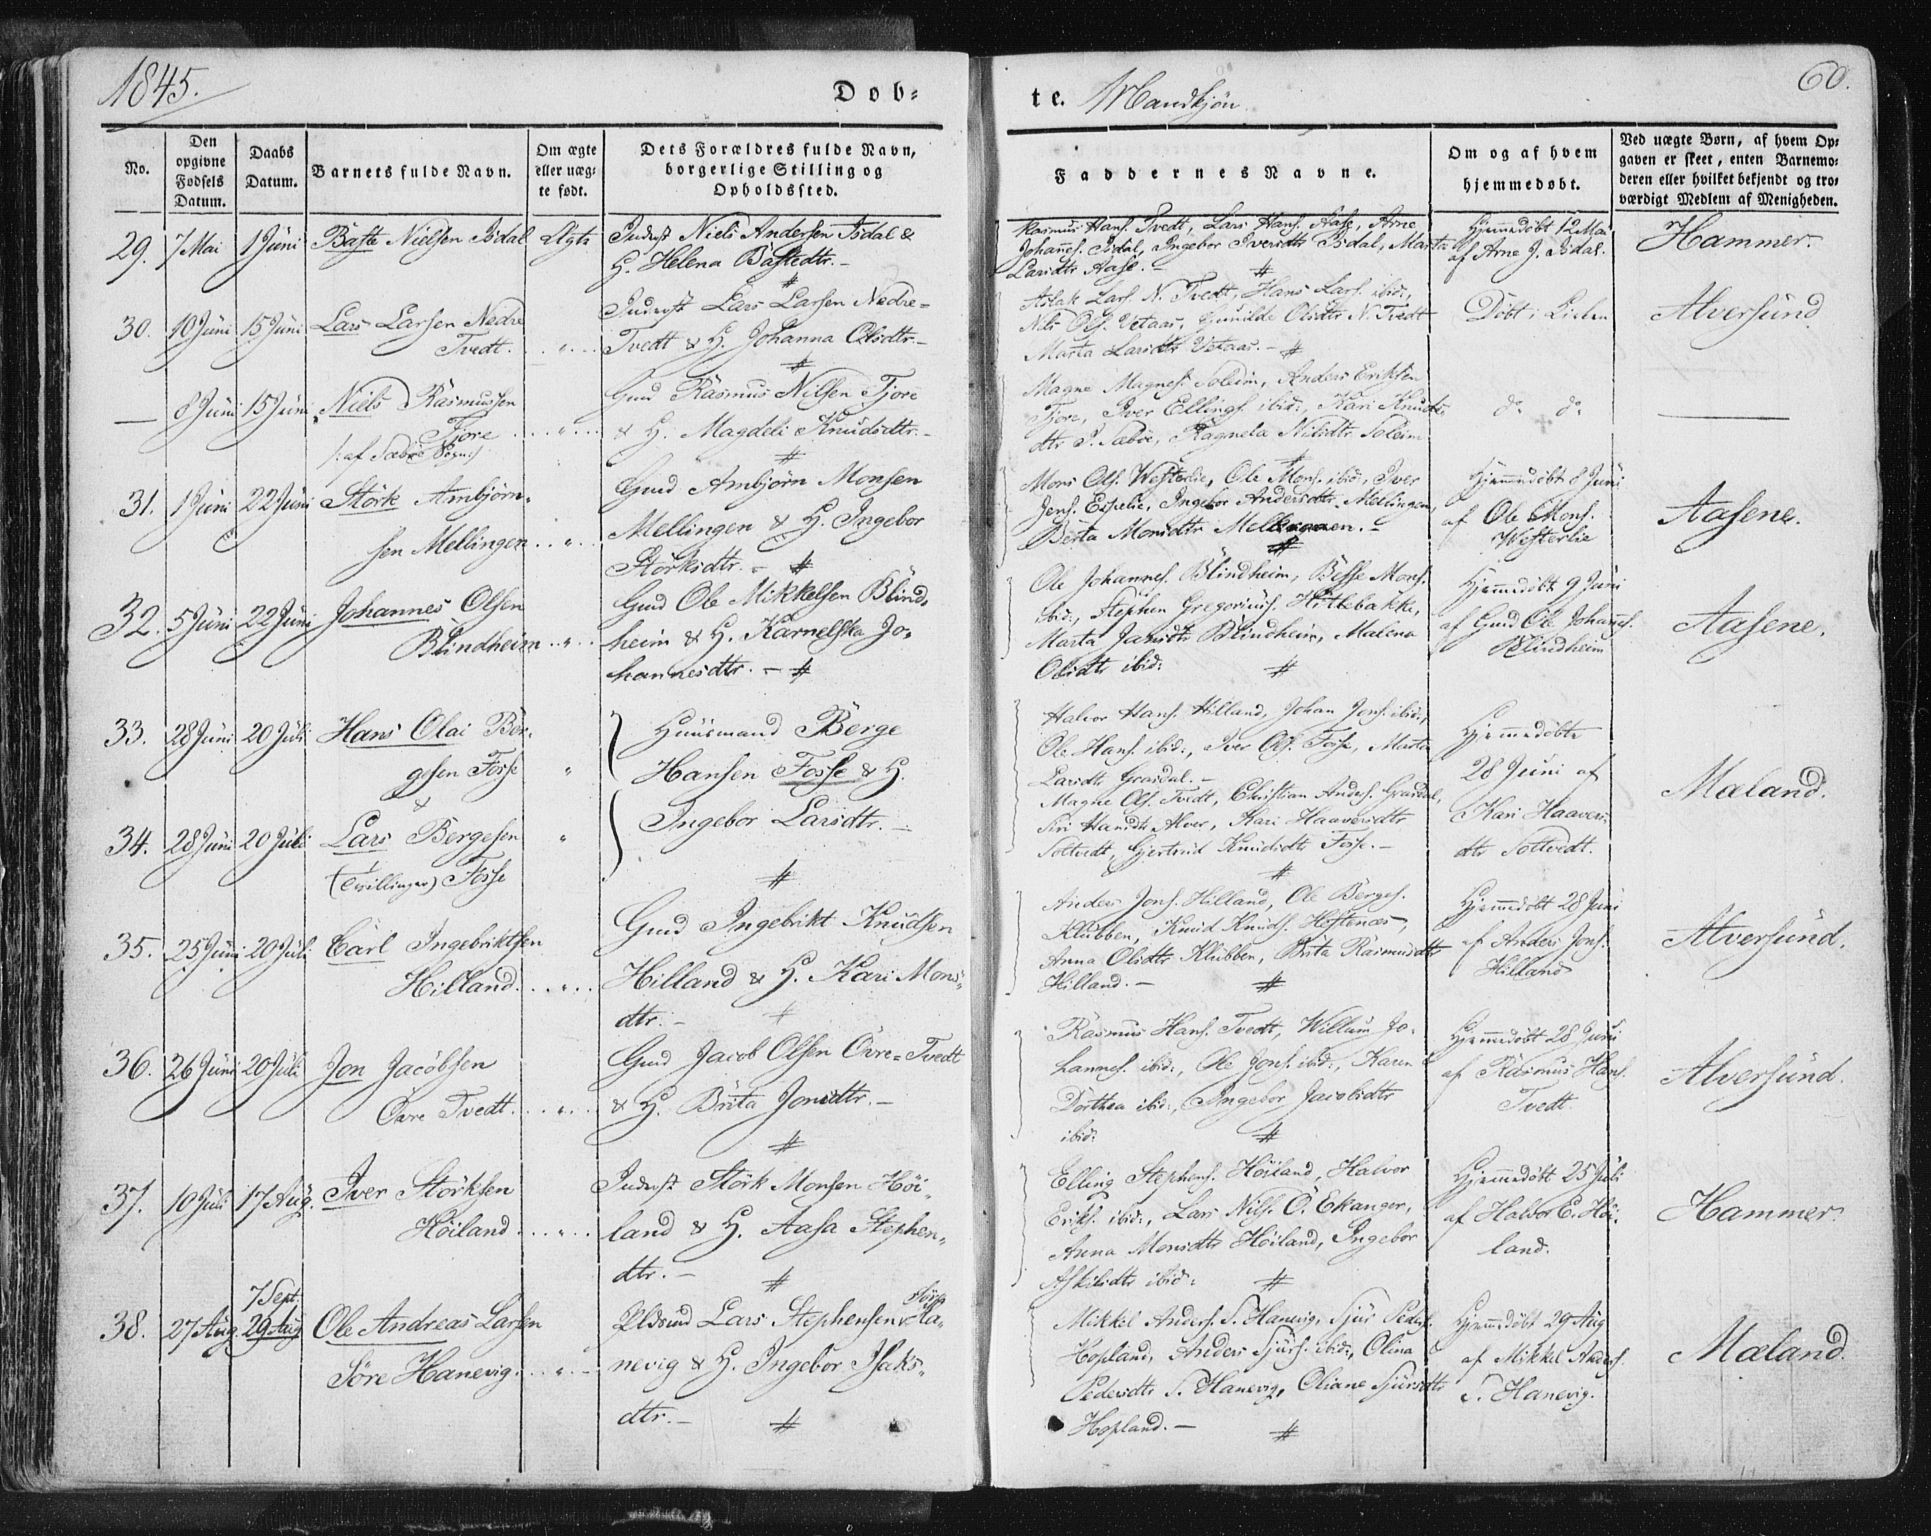 1845.
Dob-
te. Mandkjön
60.
No.
Den opgivne Fødsels Datum.
Daabs Datum.
Barnets fulde Navn.
Om ægte eller uæg-te født.
Dets Forældres fulde Navn, borgerlige Stilling og Opholdssted.
Faddernes Navne.
Om og af hvem hjemmedøbt.
Ved uægte Børn, af hvem Op-
gaven er skeet, enten Barnemo-
deren eller hvilket bekjendt og tro-
værdigt Medlem af Menigheden.
29. 7 Mai 1 Juni Båste Nielsen Isdal Ægte
Inderst Niels Andersen Isdal &
H. Helena Båstedtr. -
Rasmus Hans. Tvedt, Lars Hans. Aase, Arne
Johans. Isdal, Ingebor Iversdtr Isdal, Marta
Larsdtr Aase. -
Hjemmedöbt 12 Mai
af Arne J. Isdal.
Hammer.
30. 10 Juni 15 Juni Lars Larsen Nedre
Tvedt. . . „ . .
Inderst Lars Larsen Nedre-
Tvedt & H. Johanna Olsdtr. -
Aslak Lars. N. Tvedt, Hans Lars. ibid:,
Nils Ols. Vetaas, Gunilde Olsdtr N. Tvedt
Marta Larsdtr Vetaas. -
Döbt i Kirken
Alversund
— 8 Juni 15 Juni Niels Rasmussen
Fjore . . . „ . .
/: af Sæbøe Sogn :/
Gmd Rasmus Nilsen Fjore
& H. Magdeli Knudsdtr. -
Magne Magnes. Soleim, Anders Eriksen
Fjore, Iver Ellings. ibid:, Kari Knuds-
dtr S. Sæböe, Ragnela Nilsdtr Soleim
do do
31. 1 Juni 22 Juni Störk Arnbjörn-
sen Mellingen . . „ . .
Gmd Arnbjörn Monsen
Mellingen & H. Ingebor
Störksdtr. -
Mons Ols. Westerlie, Ole Mons. ibid:, Iver
Jens. Espelie, Ingebor Andersdtr Mellingen,
Berta Monsdtr Mellingen. -
Hjemmedöbt 8 Juni
af Ole Mons.
Westerlie
Aasene.
32. 5 Juni 22 Juni Johannes Olsen
Blindheim . . „ . .
Gmd Ole Mikkelsen Blind-
heim & H. Karnelska Jo-
hannesdtr. -
Ole Johannes. Blindheim, Besse Mons.
ibid:, Stephen Gregorius. Hillebakke,
Marta Jansdtr Blindheim, Malena
Olsdtr ibid:
Hjemmedöbt 9 Juni
af Gmd Ole Johans.
Blindheim
Aasene.
33. 28 Juni 20 Juli Hans Olai Ber-
gesen Fosse „
&
34. 28 Juni 20 Juli Lars Bergesen „
(Tvillinger) Fosse
Huusmand Berge
Hansen Fosse & H.
Ingebor Larsdtr. -
Halvor Hans. Hilland, Johan Jons. ibid:,
Ole Hans. ibid:, Iver Ols. Fosse, Marta
Larsdtr Grasdal. -
Magne Ols. Tvedt, Christian Anders. Grasdal,
Siri Hansdtr Alver, Kari Haaversdtr
Toltvedt, Gjertrud Knudsdtr Fosse. -
Hjemmedöbte
28 Juni af
Kari Haavers-
dtr Toltvedt.
Mæland.
35. 25 Juni 20 Juli Carl Ingebriktsen
Hilland . . . „ . .
Gmd Ingebrikt Knudsen
Hilland & H. Kari Mons-
dtr. -
Anders Jons. Hilland, Ole Berges.
Klubben, Knud Knuds. Hestenæs,
Anna Olsdtr Klubben, Brita Rasmusdtr
Hilland. -
Hjemmedöbt 28 Juni
af Anders Jons.
Hilland
Alversund.
36. 26 Juni 20 Juli Jon Jacobsen
Övre Tvedt . . „ . .
Gmd Jacob Olsen Övre-Tvedt
& H. Brita Jonsdtr. -
Rasmus Hans. Tvedt, Willum Jo-
hannes. ibid:, Ole Jons. ibid:, Karen
Dorthea ibid:, Ingebor Jacobsdtr
ibid:
Hjemmedöbt 28 Juni
af Rasmus Hans.
Tvedt.
Alversund.
37. 10 Juli 17 Aug. Iver Störksen
Höiland . . . „ . .
Inderst Störk Monsen Höi-
land & H. Aasa Stephen-
dtr. -
Elling Stephens. Höiland, Halvor
Eriks. ibid:, Lars Nils. O. Ekanger,
Anna Monsdtr Höiland, Ingebor
Askilsdtr ibid:
Hjemmedöbt 25 Juli
af Halvor E. Höi-
land.
Hammer.
7 Sept.
38. 27 Aug 29 Aug Ole Andreas Larsen
Söre Hanevig . . „ . .
Söre
Lars Stephensen Ha-
nevig & H. Ingebor Isaks-
dtr. -
Mikkel Anders. S. Hanevig, Sjur Peders.
Hopland, Anders Sjurs. ibid:, Olina
Pedersdtr S. Hanevig, Oliane Sjursdtr
Hopland. -
Hjemmedöbt 29 Aug
af Mikkel Anders.
S. Hanevig.
Mæland.